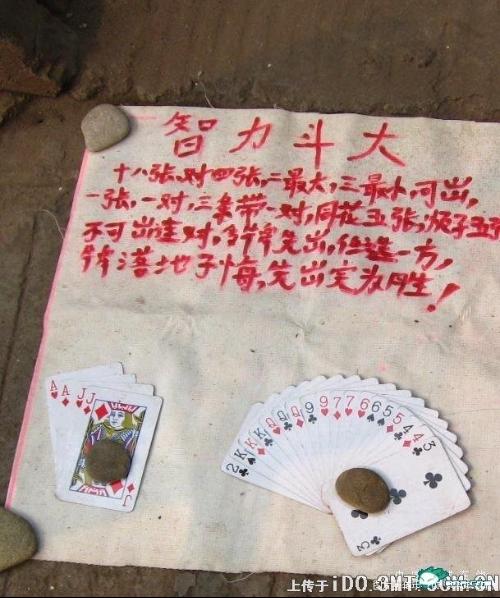 智力斗大
十八张对四张,二最大,三最小,可出,
一张,一对,三条带一对,同花五张,顺子五
不可出连对,多牌先出,任选一方,
牌落地不悔,先出完为胜!
A A J J
J
2 K K Q Q Q 9 9 7 7 6 6 5 5 4 4 3
3
上传于 iDO.3MT.COM.CN